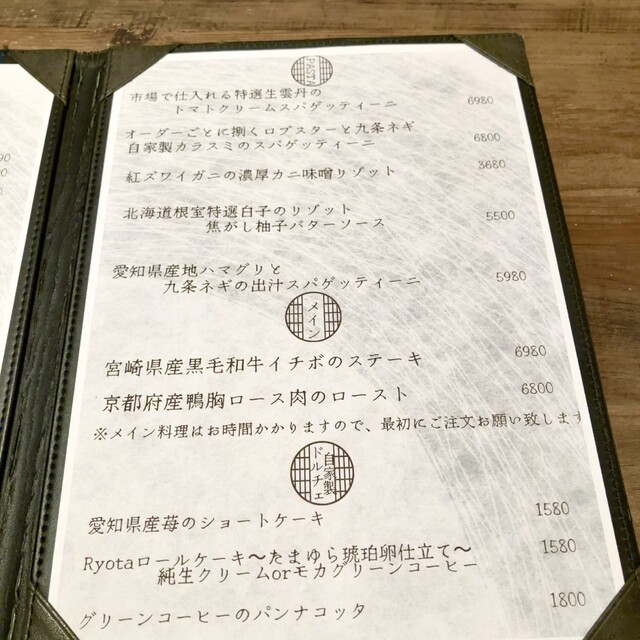 PASTA
市場で仕入れる特選生雲丹の
トマトクリームスパゲッティーニ 6980
オーダーごとに捌くロブスターと九条ネギ
自家製カラスミのスパゲッティーニ 6800
紅ズワイガニの濃厚カニ味噌リゾット 3680
北海道根室特選白子のリゾット
焦がし柚子バターソース 5500
愛知県産地ハマグリと
九条ネギの出汁スパゲッティーニ 5980
メイン
宮崎県産黒毛和牛イチボのステーキ 6980
京都府産鴨胸ロース肉のロースト 6800
※メイン料理はお時間かかりますので、最初にご注文お願い致します
自家製
ドルチェ
愛知県産苺のショートケーキ 1580
Ryotaロールケーキ～たまゆら琥珀卵仕立て～ 1580
純生クリームorモカグリーンコーヒー
グリーンコーヒーのパンナコッタ 1800